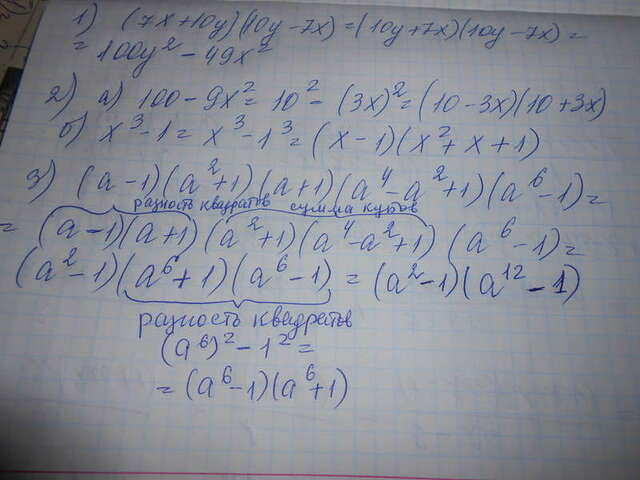 1) (7x+10y)(10y-7x)=(10y+7x)(10y-7x)=
=100y²-49x²
2) а) 100-9x²=10²-(3x)²=(10-3x)(10+3x)
б) x³-1=x³-1³=(x-1)(x²+x+1)
3) (a-1)(a²+1)(a+1)(a⁴-a²+1)(a⁶-1)=
разность квадратов сумма кубов
= (a-1)(a+1)(a²+1)(a⁴-a²+1)(a⁶-1)=
(a²-1)(a⁶+1)(a⁶-1)=(a²-1)(a¹²-1)
разность квадратов
(a⁶)²-1²=
=(a⁶-1)(a⁶+1)